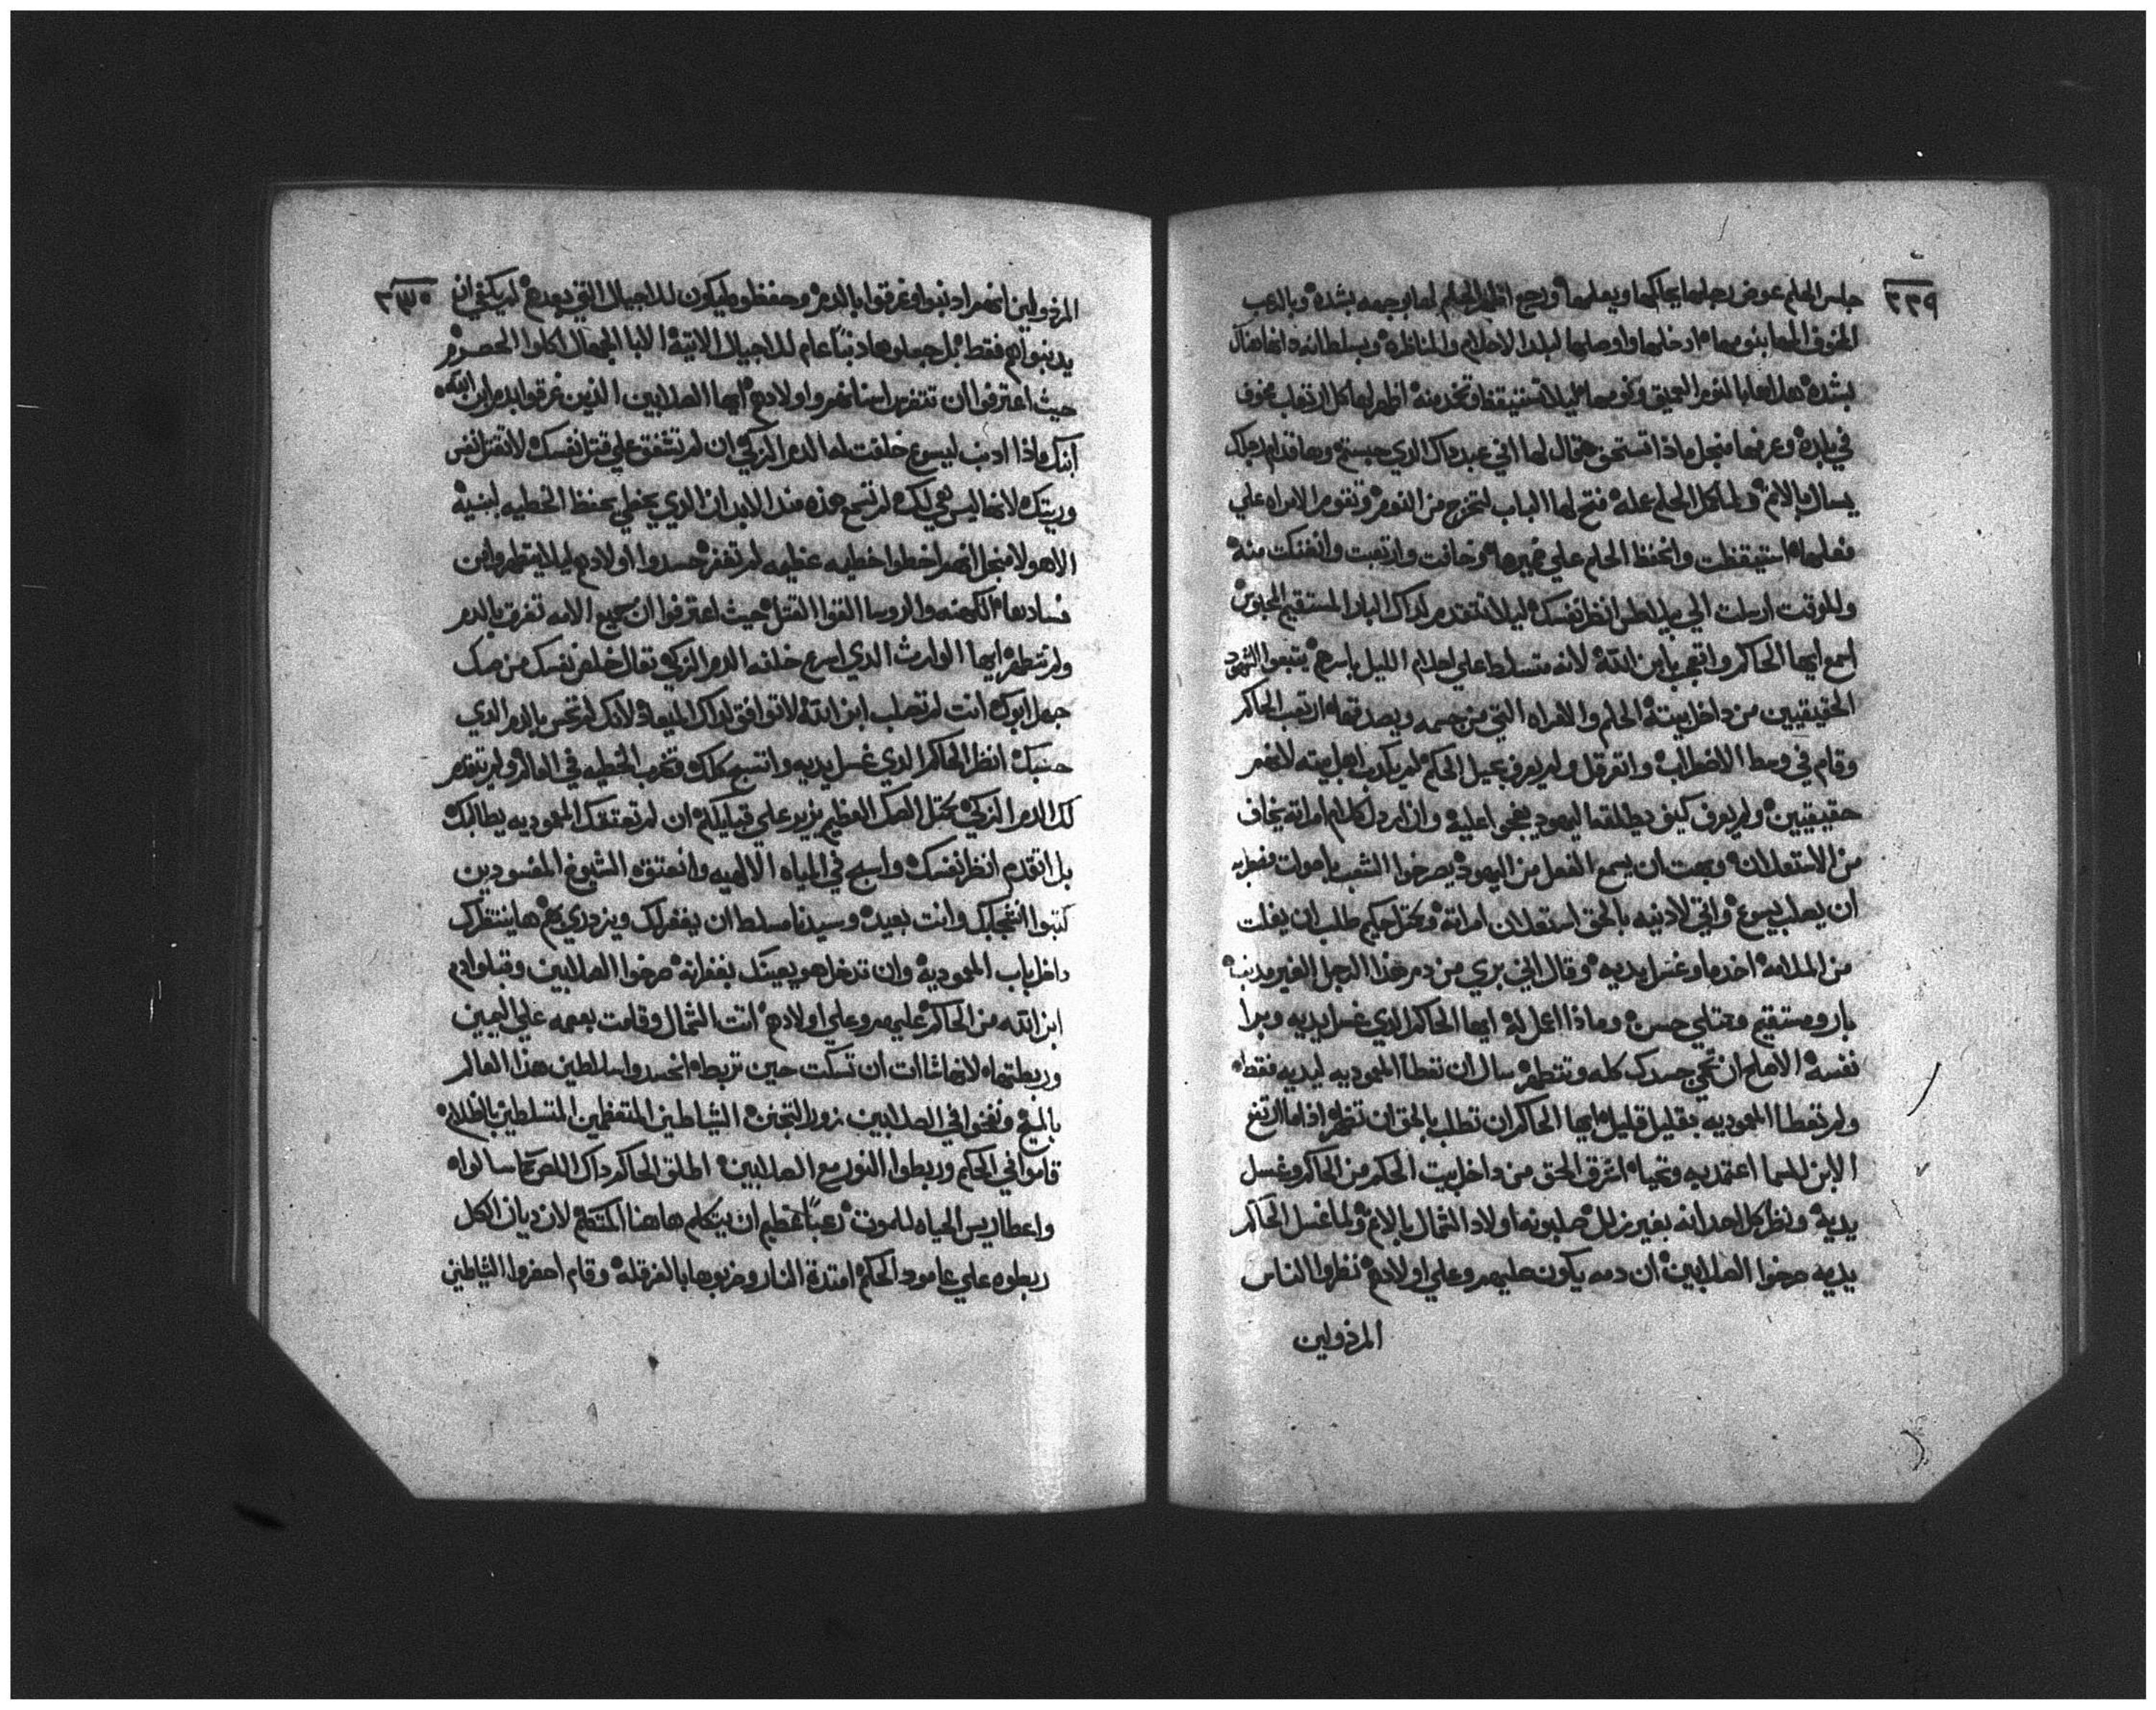 ٣٣٩
جلس الحلم عوض رجلها يحاكمها ويعلمها ورجع اظهر الحلم لها بوجهه بشده وبالرعب
المخوف الهمها بنومها ادخلها واوصلها لبلد الاحلام والمناظر وبسلطانه
بشده بالنوم العميق ونومها ليلا تستيقظ اظهر لها كل الارتعاب بخوف
في بلده وعرفها منجل ماذا تستحق وقال لها اني عبد داك الدي حبستم وها قدام رجلك
يسال بالاثم ولما كمل الحلم عمله فتح لها الباب لتخرج من النوم وتقوم الامراه علي
فعلها استيقظت وانحفظ الحلم علي ضميرها وخافت وارتعبت منه
وللوقت ارسلت الي بيلاطس انظر نفسك ليلا تتقدم لداك البار المستقيم
اسمع ايها الحاكم واتعجب بابن الله لانه متسلط علي احلام الليل باسرهم يتبعوا الشهود
الحقيقيين من داخل بيته الحلم والامراه التي من جسمه ويصدقها ارتعب الحاكم
وقام في وسط الاضطراب ولم يعرف يحيل الحكم لم يكدب اهل بيته لانهم
حقيقيين ولم يعرف كيف يطلقه اليهود يضجوا عليه وان ابردل كلام امراته يخاف
من الاستعلان وبهت ان يسمع الفعل من اليهود يصرخوا الشعب باصوات
ان يصلب يسوع واتي لادنيه بالحق استعلان امراته طلب ان يفلت
من الملامه اخد ما وغسل يديه وقال اني بري من دم هذا الرجل الغير مدنب
بار ومستقيم وممتلي حسن وماذا اعمل له ايها الحاكم الدي غسل يديه وبرا
نفسه الاصلح ان تحمي جسدك كله وتتطهر سال ان تعطا المعموديه ليديه فقط
ولم تعطا المعموديه بقليل قليل ايها الحاكم ان تطلب بالحق ان تطهر اذا ما ارتفع
الابن للسما اعتمد به وتحيا اشرق الحق من داخل بيت الحكم من الحاكم وغسل
يديه ونظر كل احد انه بغير زلل صلبونه اولاد الشمال بالاثم ولما غسل الحاكم
يديه صرخوا الصلابين ان دمه يكون عليهم وعلي اولادهم نظروا الناس
المرذولين
٣٣٠
المرذولين انهم ادنبوا وغرقوا بالدم وحفظوه ليكون للاجيال التي بعدهم لم يكفي ان
يدنبوا هم فقط بل جعلوها دنباً عام للاجيال الاتيه الابا الجهال اكلوا الحصرم
حيث اعترفوا ان تتضرس اسنانهم واولادهم ايها الصلابين الذين غرقوا بدم ابن الله
ابنك ماذا ادنب ليسوع خلفت له الدم الزكي ان لم تشفق علي قتل نفسك لا تقتل نفس
وريتك لانها ليس هي لك لم تسمع هذه مند الابد ان الدي يخطي يحفظ الخطيه لبنيه
الا هولا منجل انهم اخطوا خطيه عظيمه لم تغفر حسدوا اولادهم ليلا يتطهروا من
فسادها الكهنه والروسا القوا القتل حيث اعترفوا ان جميع الامه تغرق بالدم
ولم تتطهر ايها الوارث الدي اسرع خلفه الدم الزكي تعال خلص نفسك من صك
جهل ابوك انت لم تصلب ابن الله لا توافق لداك الميعاد لانك لم تحس بالدم الدي
حبك انظر الحاكم الدي غسل يديه واتسبح كلك وتهرب الخطيه في العالم ولم يتقدم
لك الدم الزكي بحمل الصك العظيم يزيد علي قبيلتك ان لم تعتقك المعموديه يطالبك
بل اتقدم انظر نفسك واسبح في المياه الالهيه وانعتق الشيوخ المفسودين
كتبوا لتخجلك وانت بعيد وسيدنا مسلط ان يغفر لك ويزدري بهم ها ينتظرك
داخل باب المعموديه وان تدخل هو يعينك بغفرانه صرخوا الصلابين وقبلوا دم
ابن الله من الحاكم عليهم وعلي اولادهم اتت الشمال وقامت بعمه علي اليمين
وربطتها لانها شات ان تسكت حين تربطه انحسدوا سلاطين هذا العالم
بالمسيح ونفخوا في الصلابين الشياطين المتعظمين المتسلطين بالظلام
قاموا في الحكم وربطوا النور مع الصلابين اطلق الحاكم داك اللص كما سالوا
واعطا ريس الحياه للموت رعباً عظيم ان يتكلم هاهنا المتكلم لان ديان الكل
ربطوه علي عامود الحكم امتدة النار وضربوها بالفرقله وقام احضروا الشياطين